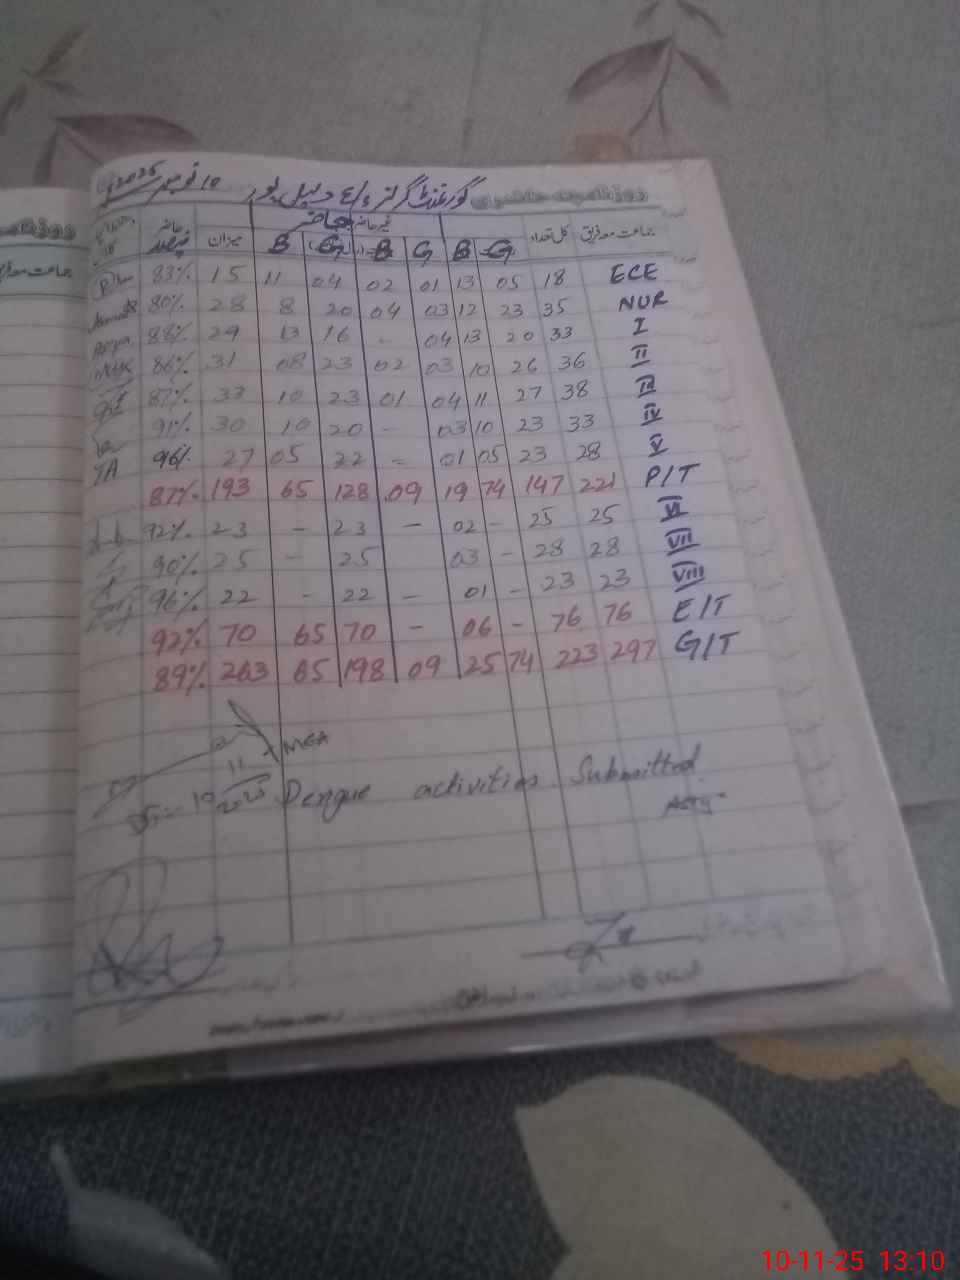 روزنامچہ حاضری گورنمنٹ گرلز 10 نومبر 2025
جماعت معہ فریق کل تعداد غیر حاضر حاضر میزان حاضر فیصد
G B G B G B
ECE 18 05 13 01 02 04 11 15 83%
NUR 35 23 12 03 04 20 8 28 80%
I 33 20 13 04 - 16 13 29 88%
II 36 26 10 03 02 23 08 31 86%
III 38 27 11 04 01 23 10 33 87%
IV 33 23 10 03 - 20 10 30 91%
V 28 23 05 01 - 22 05 27 96%
P/T 221 147 74 19 09 128 65 193 87%
VI 25 25 - 02 - 23 - 23 92%
VII 28 28 - 03 25 - 25 90%
VIII 23 23 - 01 - 22 - 22 96%
E/T 76 76 - 06 - 70 65 70 92%
G/T 297 223 74 25 09 198 65 263 89%
MEA
10 11 2025 Dengue activities Submitted.
10-11-25 13:10